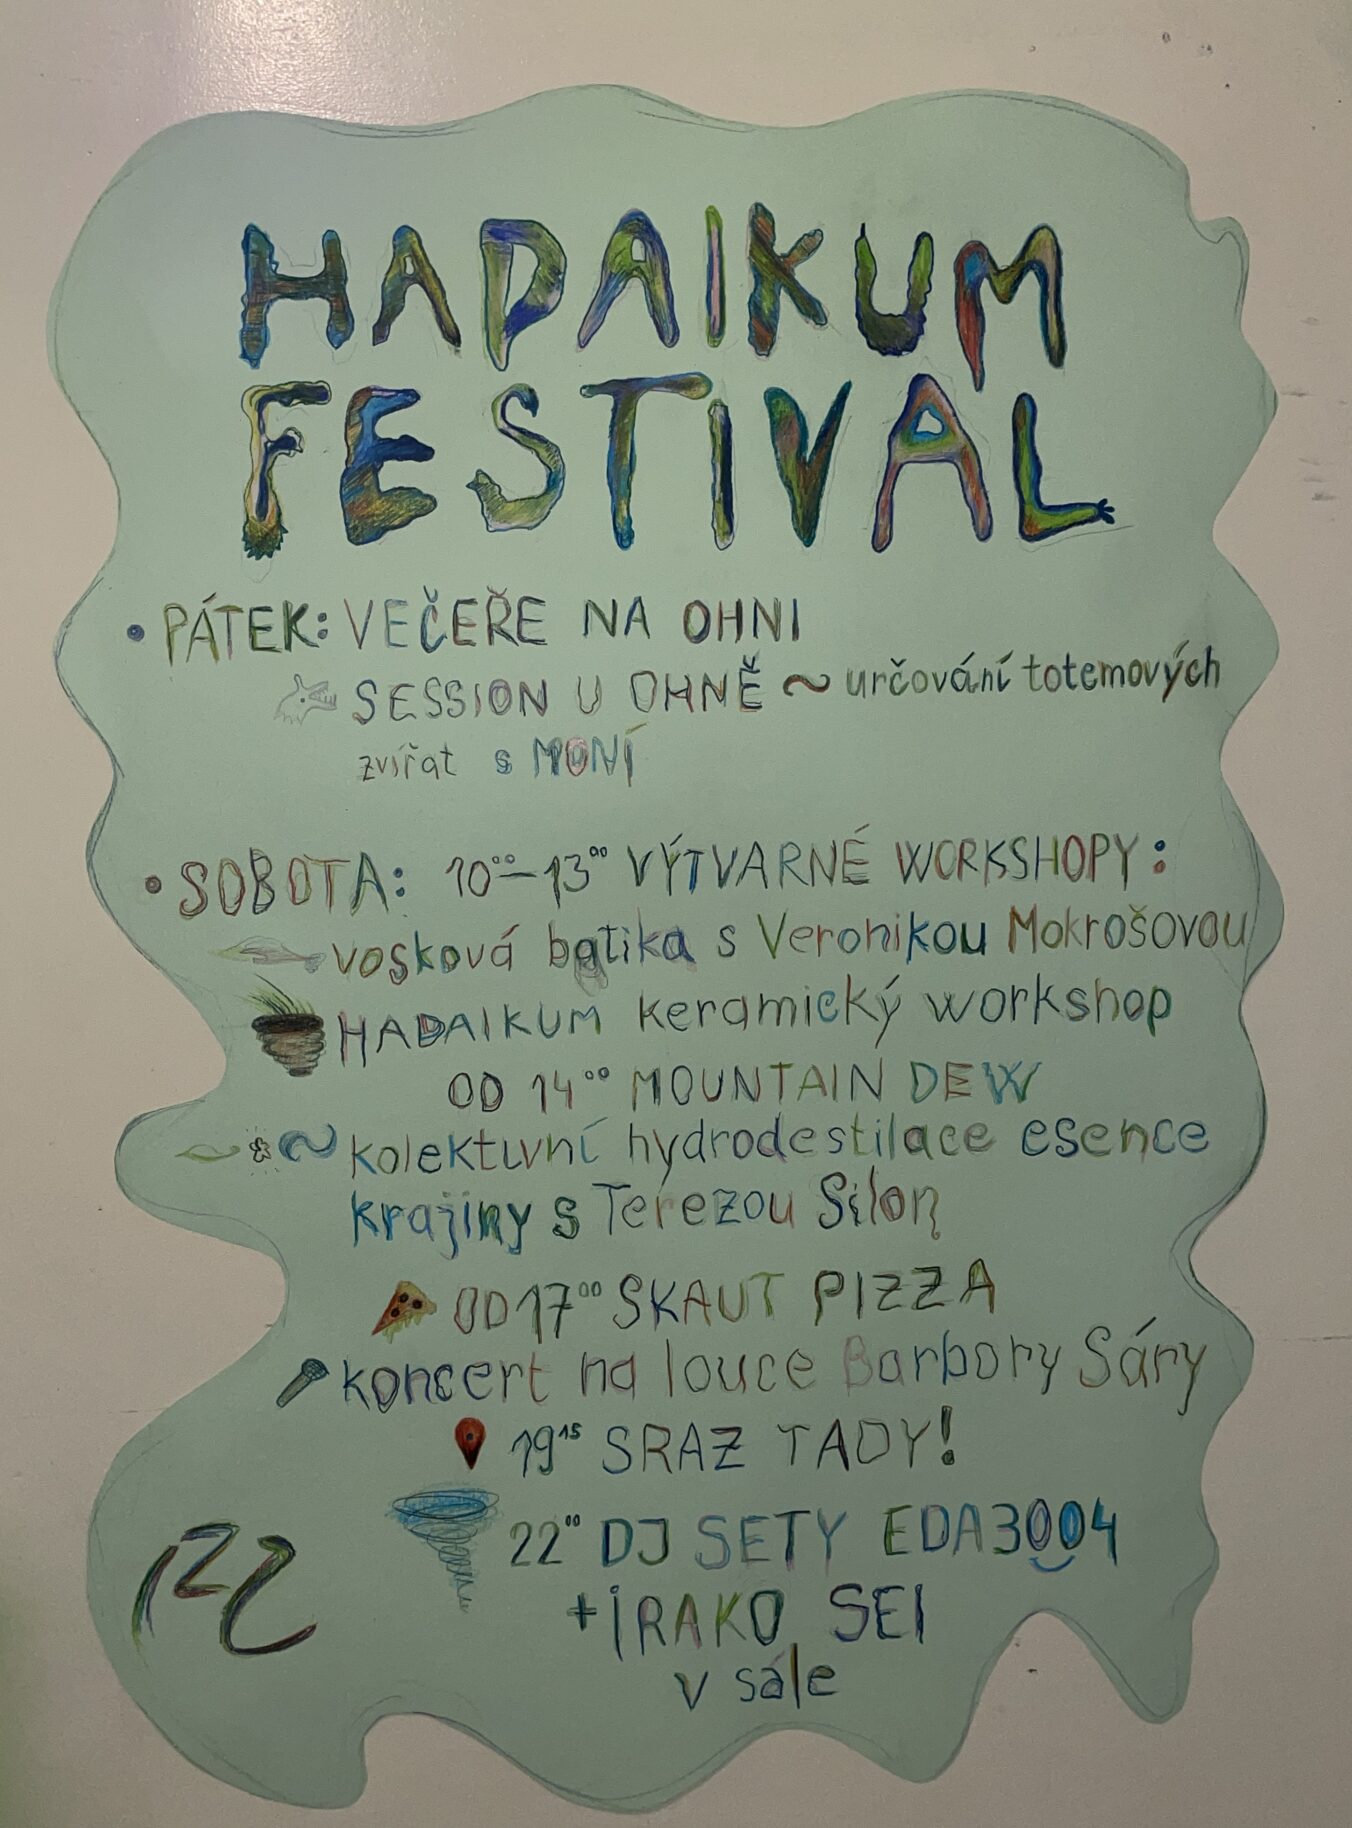 HADAIKUM
FESTIVAL
• PÁTEK: VEČEŘE NA OHNI
SESSION U OHNĚ ~ určování totemových
zvířat s MONÍ
• SOBOTA: 10⁰⁰–13⁰⁰ VÝTVARNÉ WORKSHOPY:
vosková batika s Veronikou Mokrošovou
HADAIKUM keramický workshop
OD 14⁰⁰ MOUNTAIN DEW
kolektivní hydrodestilace esence
krajiny s Terezou Silon
OD 17⁰⁰ SKAUT PIZZA
koncert na louce Barbory Sáry
19¹⁵ SRAZ TADY!
22⁰⁰ DJ SETY EDA3004
+ IRAKO SEI
v sále